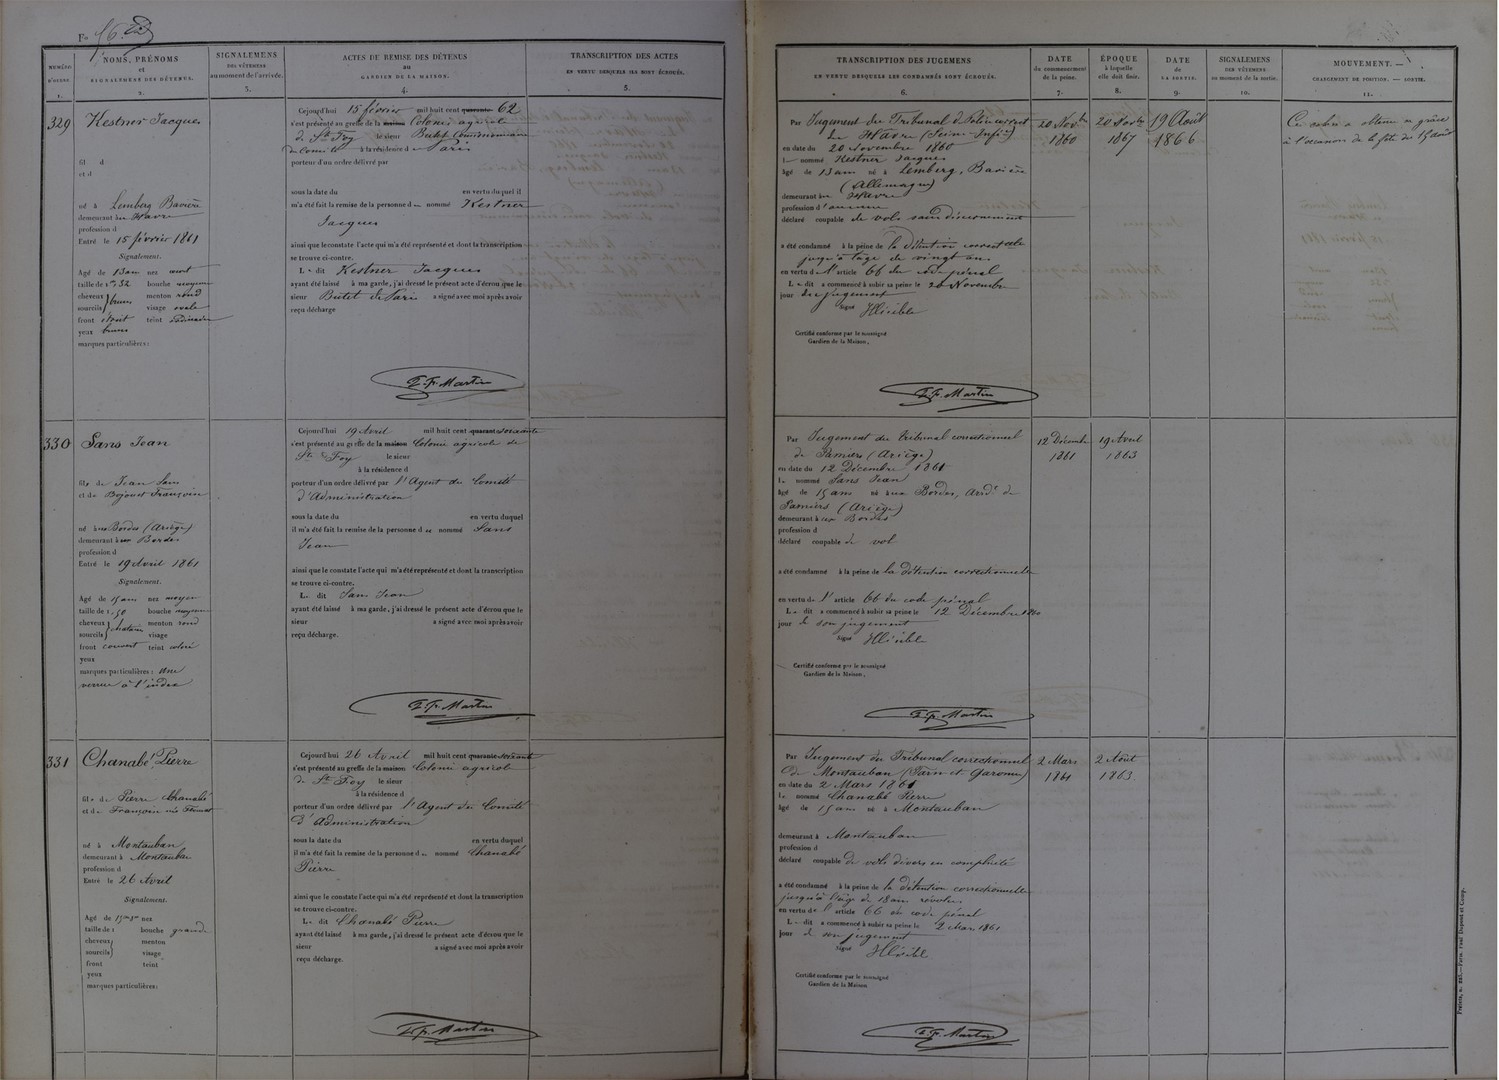 Fo 56
NUMÉRO D'ORDRE. 1.
NOMS, PRÉNOMS et SIGNALEMENS DES DÉTENUS. 2.
SIGNALEMENS DES VÊTEMENS au moment de l'arrivée. 3.
ACTES DE REMISE DES DÉTENUS au GARDIEN DE LA MAISON. 4.
TRANSCRIPTION DES ACTES EN VERTU DESQUELS ILS SONT ÉCROUÉS. 5.
TRANSCRIPTION DES JUGEMENS EN VERTU DESQUELS LES CONDAMNÉS SONT ÉCROUÉS. 6.
DATE du commencement de la peine. 7.
ÉPOQUE à laquelle elle doit finir. 8.
DATE de LA SORTIE. 9.
SIGNALEMENS DES VÊTEMENS au moment de la sortie. 10.
MOUVEMENT. — CHANGEMENT DE POSITION. — SORTIE. 11.
329
Kestner Jacques
fil d
et d
né à Lemberg Bavière
demeurant au Havre
profession d
Entré le 15 février 1861
Signalement.
Agé de 13 ans nez
taille de 1m 32 bouche moyenne
cheveux menton rond
sourcils } bruns visage ovale
front étroit teint ordinaire
yeux bruns
marques particulières :
Cejourd'hui 15 février mil huit cent quarante 62
s'est présenté au greffe de la maison Colonie agricole
de Ste Foy le sieur Butet Commissionnaire
du Comité à la résidence de Paris
porteur d'un ordre délivré par
sous la date du en vertu duquel il
m'a été fait la remise de la personne d nommé Kestner
Jacques
ainsi que le constate l'acte qui m'a été représenté et dont la transcription
se trouve ci-contre.
Le dit Kestner Jacques
ayant été laissé à ma garde, j'ai dressé le présent acte d'écrou que le
sieur Butet de Paris a signé avec moi après avoir
reçu décharge
Martin
Par Jugement du Tribunal
du Havre (Seine Infre)
en date du 20 Novembre 1860
le nommé Kestner Jacques
âgé de 13 ans né à Lemberg, Bavière
(Allemagne)
demeurant au Havre
profession d'aucune
déclaré coupable de vols sans discernement
a été condamné à la peine de la détention correctle
jusqu'à l'âge de vingt ans
en vertu de l'article 66 du code pénal
Le dit a commencé à subir sa peine le 20 Novembre
jour du jugement
Signé Illisible
Certifié conforme par le soussigné
Gardien de la Maison,
Martin
20 Novbre
1860
20 Novbre
1867
19 Août
1866
Ce sorti a obtenu sa grâce
à l'occasion de la fête du 15 août
330
Sans Jean
fils de Jean Sans
et de Bojouet Françoise
né aux Bordes (Ariège)
demeurant aux Bordes
profession d
Entré le 19 Avril 1861
Signalement.
Agé de 15 ans nez moyen
taille de 1,50 bouche moyenne
cheveux menton rond
sourcils } chatain visage
front couvert teint coloré
yeux
marques particulières : Une
verrue à l'index
Cejourd'hui 19 Avril mil huit cent quarante soixante
s'est présenté au greffe de la maison Colonie agricole de
Ste Foy le sieur
à la résidence d
porteur d'un ordre délivré par l'Agent du Comité
d'Administration
sous la date du en vertu duquel
il m'a été fait la remise de la personne d nommé Sans
Jean
ainsi que le constate l'acte qui m'a été représenté et dont la transcription
se trouve ci-contre.
Le dit Sans Jean
ayant été laissé à ma garde, j'ai dressé le présent acte d'écrou que le
sieur a signé avec moi après avoir
reçu décharge.
Martin
Par Jugement du tribunal correctionnel
de Pamiers (Ariège)
en date du 12 Décembre 1861
le nommé Sans Jean
âgé de 15 ans né aux Bordes, Arrdt de
Pamiers (Ariège)
demeurant à aux Bordes
profession d
déclaré coupable de vol
a été condamné à la peine de la détention correctionnelle
en vertu de l'article 66 du code pénal
Le dit a commencé à subir sa peine le 12 Décembre 1860
jour de son jugement
Signé Illisible
Certifié conforme par le soussigné
Gardien de la Maison,
Martin
12 Décembre
1861
19 Avril
1863
331
Chanabé Pierre
fils de Pierre Chanabé
et de Françoise née
né à Montauban
demeurant à Montauban
profession d
Entré le 26 Avril
Signalement.
Agé de 15 ans nez
taille de 1 bouche grande
cheveux menton
sourcils } visage
front teint
yeux
marques particulières:
Cejourd'hui 26 Avril mil huit cent quarante soixante
s'est présenté au greffe de la maison Colonie agricole
de Ste Foy le sieur
à la résidence d
porteur d'un ordre délivré par l'Agent du Comité
d'Administration
sous la date du en vertu duquel
il m'a été fait la remise de la personne d nommé Chanabé
Pierre
ainsi que le constate l'acte qui m'a été représenté et dont la transcription
se trouve ci-contre.
Le dit Chanabé Pierre
ayant été laissé à ma garde, j'ai dressé le présent acte d'écrou que le
sieur a signé avec moi après avoir
reçu décharge.
Martin
Par Jugement du Tribunal correctionnel
de Montauban (Tarn et Garonne)
en date du 2 Mars 1861
le nommé Chanabé Pierre
âgé de 15 ans né à Montauban
demeurant à Montauban
profession d
déclaré coupable de vols divers en complicité
a été condamné à la peine de la détention correctionnelle
jusqu'à l'âge de 18 ans révolus
en vertu de l'article 66 du code pénal
Le dit a commencé à subir sa peine le 2 Mars 1861
jour de son jugement
Signé Illisible
Certifié conforme par le soussigné
Gardien de la Maison
Martin
2 Mars
1861
2 Août
1863